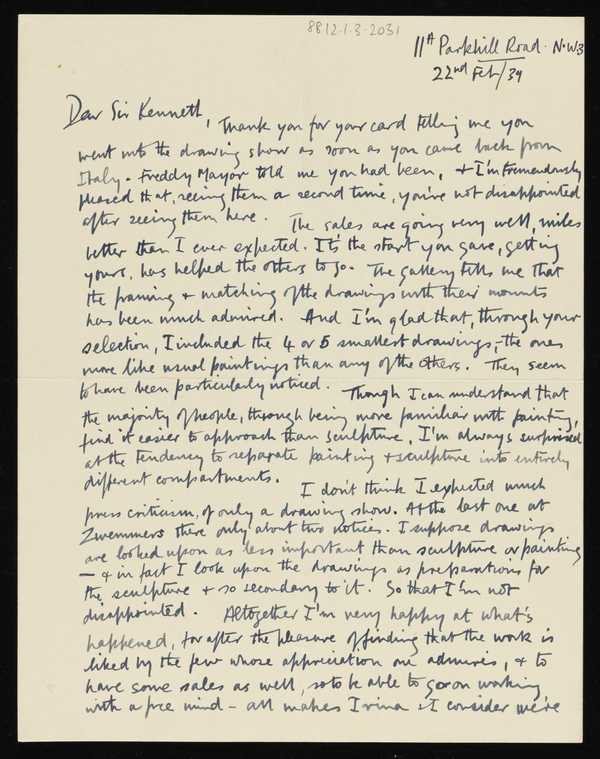 8812.1.3.2031
11A Parkhill Road. N.W.3
22nd Feb/39
Dear Sir Kenneth,
Thank you for your card telling me you
went into the drawing show as soon as you came back from
Italy. Freddy Mayor told me you had been, & I'm tremendously
pleased that, seeing them a second time, you're not disappointed
after seeing them here. The sales are going very well, miles
better than I ever expected. It's the start you gave, getting
yours, has helped the others to go. The gallery tells me that
the framing & matching of the drawings with their mounts
has been much admired. And I'm glad that, through your
selection, I included the 4 or 5 smallest drawings,- the ones
more like usual paintings than any of the others. They seem
to have been particularly noticed. Though I can understand that
the majority of people, through being more familiar with painting,
find it easier to approach than sculpture, I'm always surprised
at the tendency to separate painting & sculpture into entirely
different compartments. I don't think I expected much
press criticism, of only a drawing show. At the last one at
Zwemmers there only about two notices. I suppose drawings
are looked upon as less important than sculpture or painting
— & in fact I look upon the drawings as preparations for
the sculpture & so secondary to it. So that I'm not
disappointed. Altogether I'm very happy at what's
happened, for after the pleasure of finding that the work is
liked by the few whose appreciation one admires, & to
have some sales as well, so to be able to go on working
with a free mind – all makes Irina & I consider we're